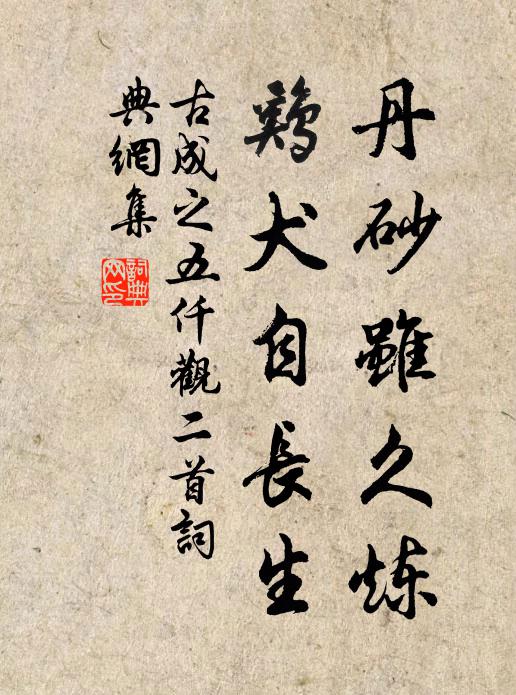 丹砂雖久炼
鷄犬自長生
古成之五仟觀二首詞
典網集
詞典網印